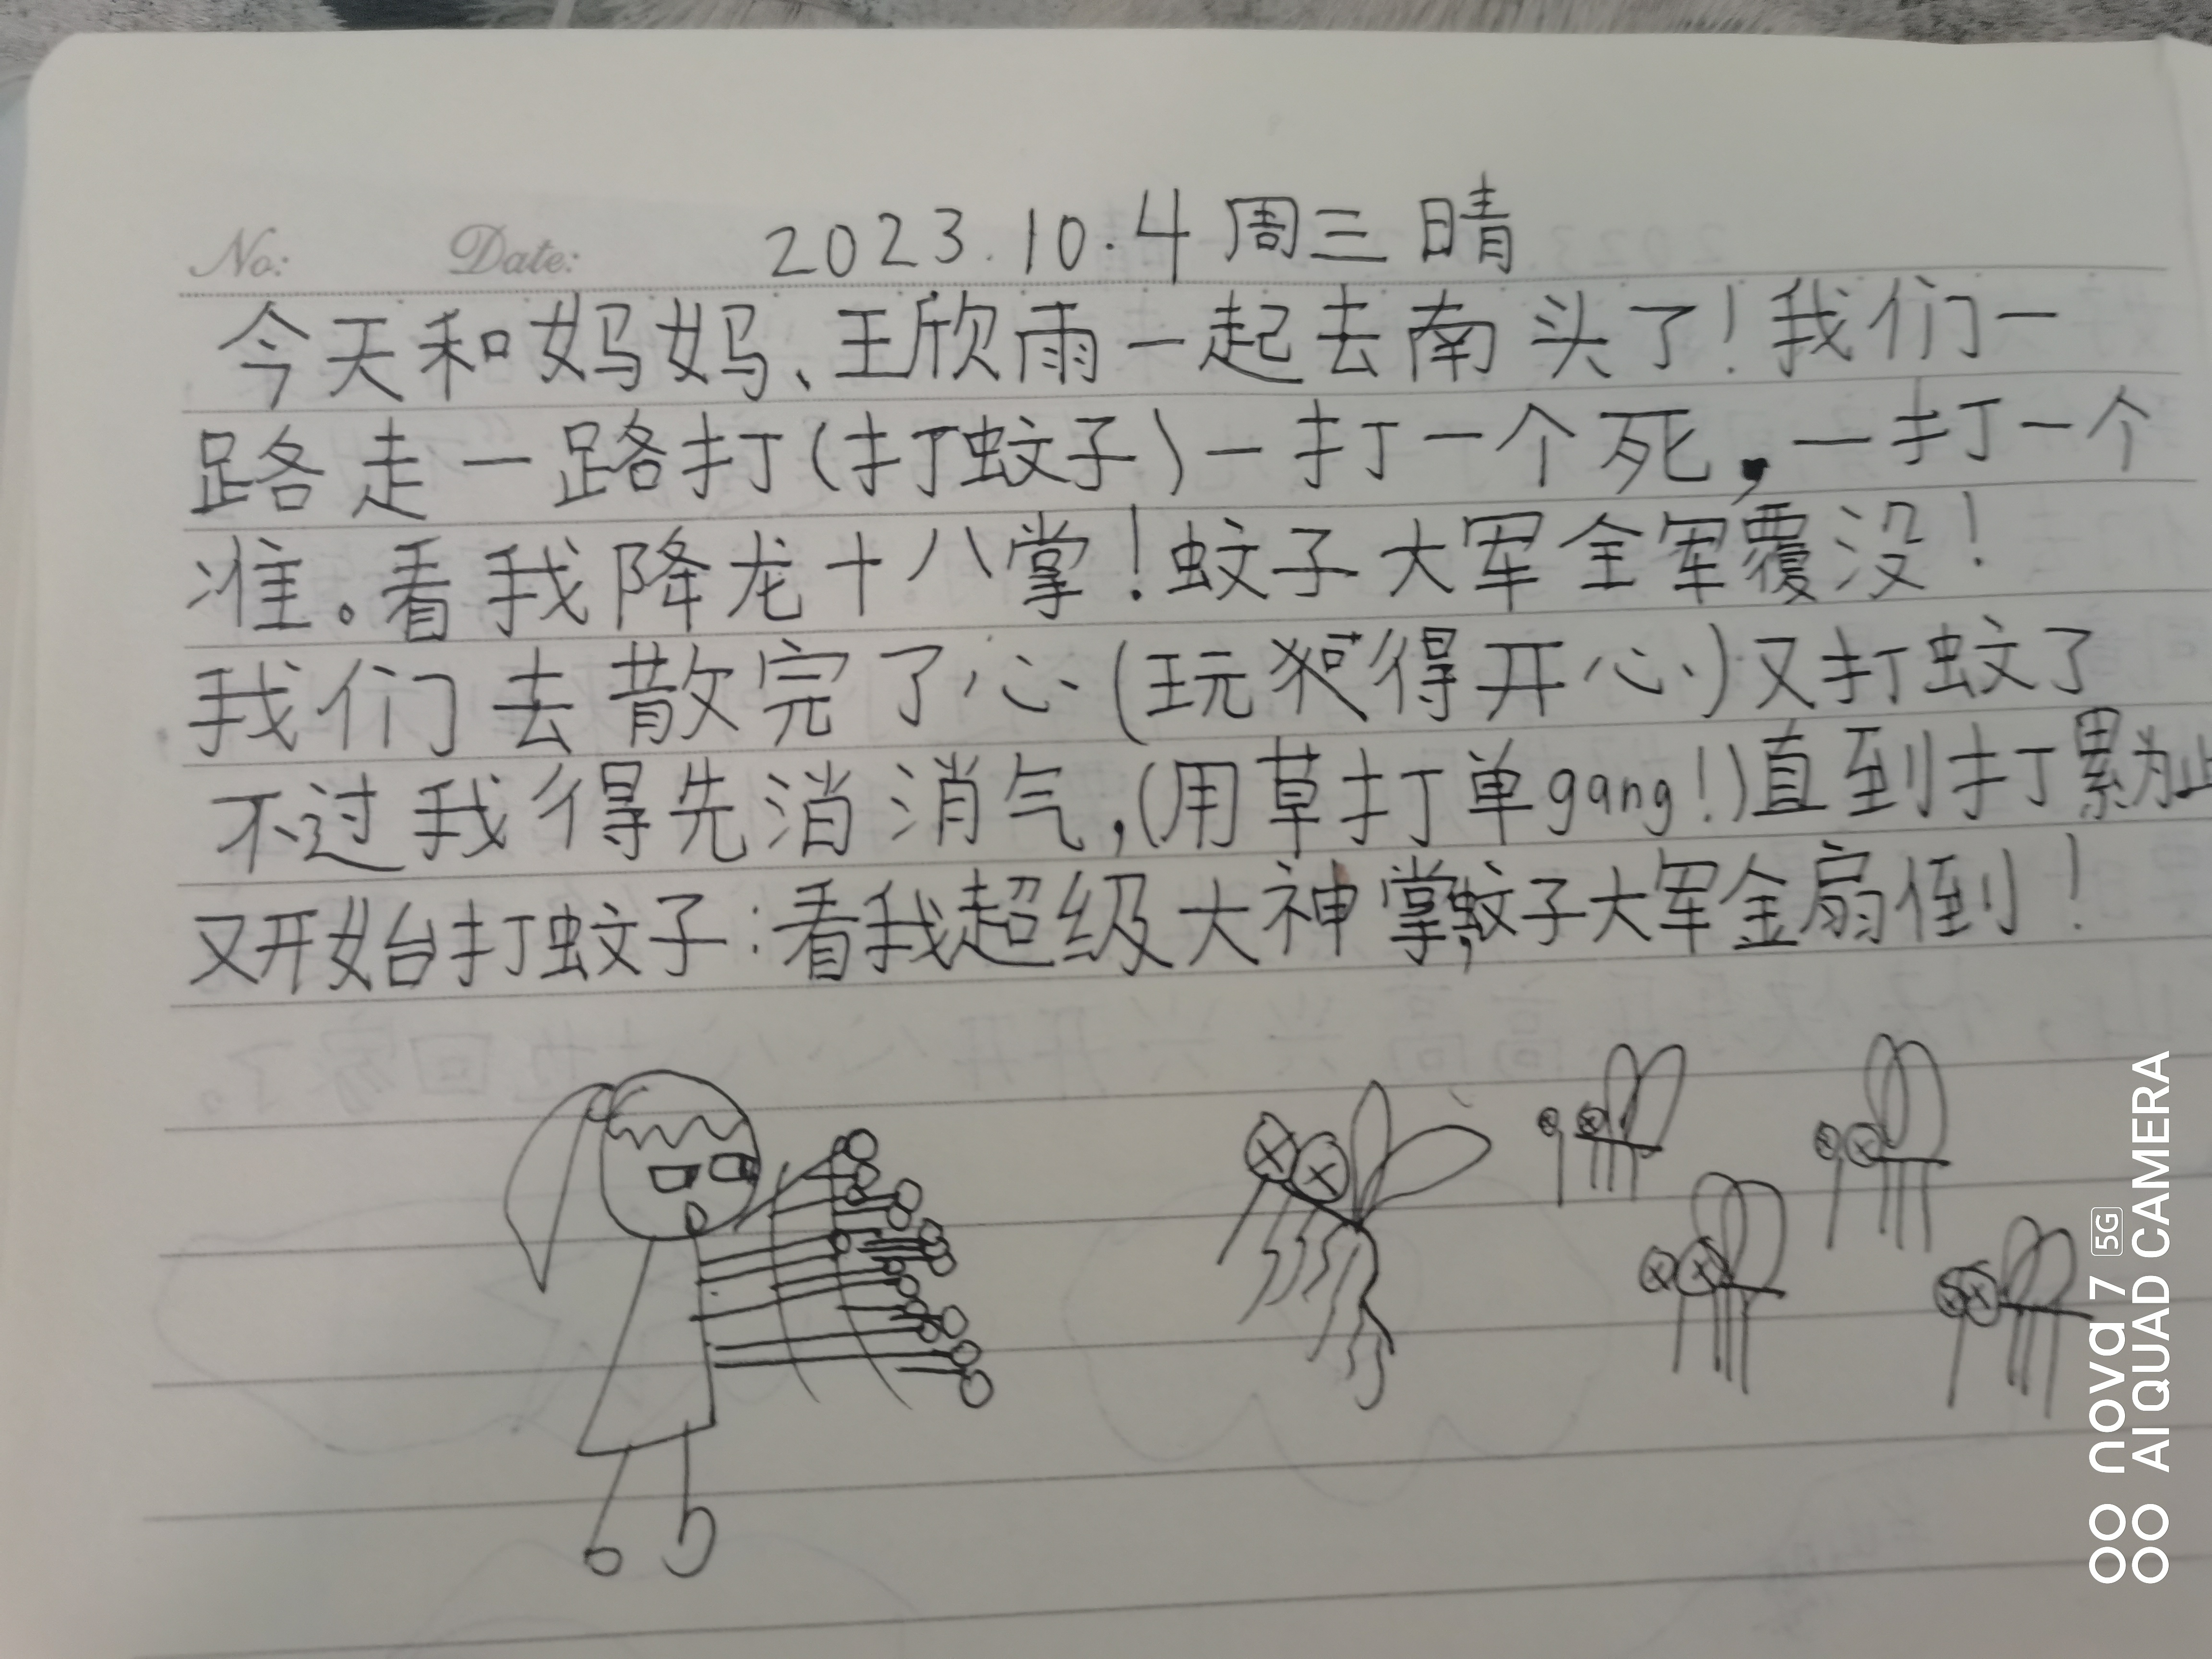 No: Date: 2023.10.4 周三 晴
今天和妈妈、王欣雨一起去南头了！我们一
路走一路打(打蚊子)一打一个死，一打一个
准。看我降龙十八掌！蚊子大军全军覆没！
我们去散完了心(玩得开心)又打蚊了
不过我得先消消气，(用草打单gang！)直到打累为止
又开始打蚊子：看我超级大神掌，蚊子大军金扇倒！
nova 7 5G
AI QUAD CAMERA